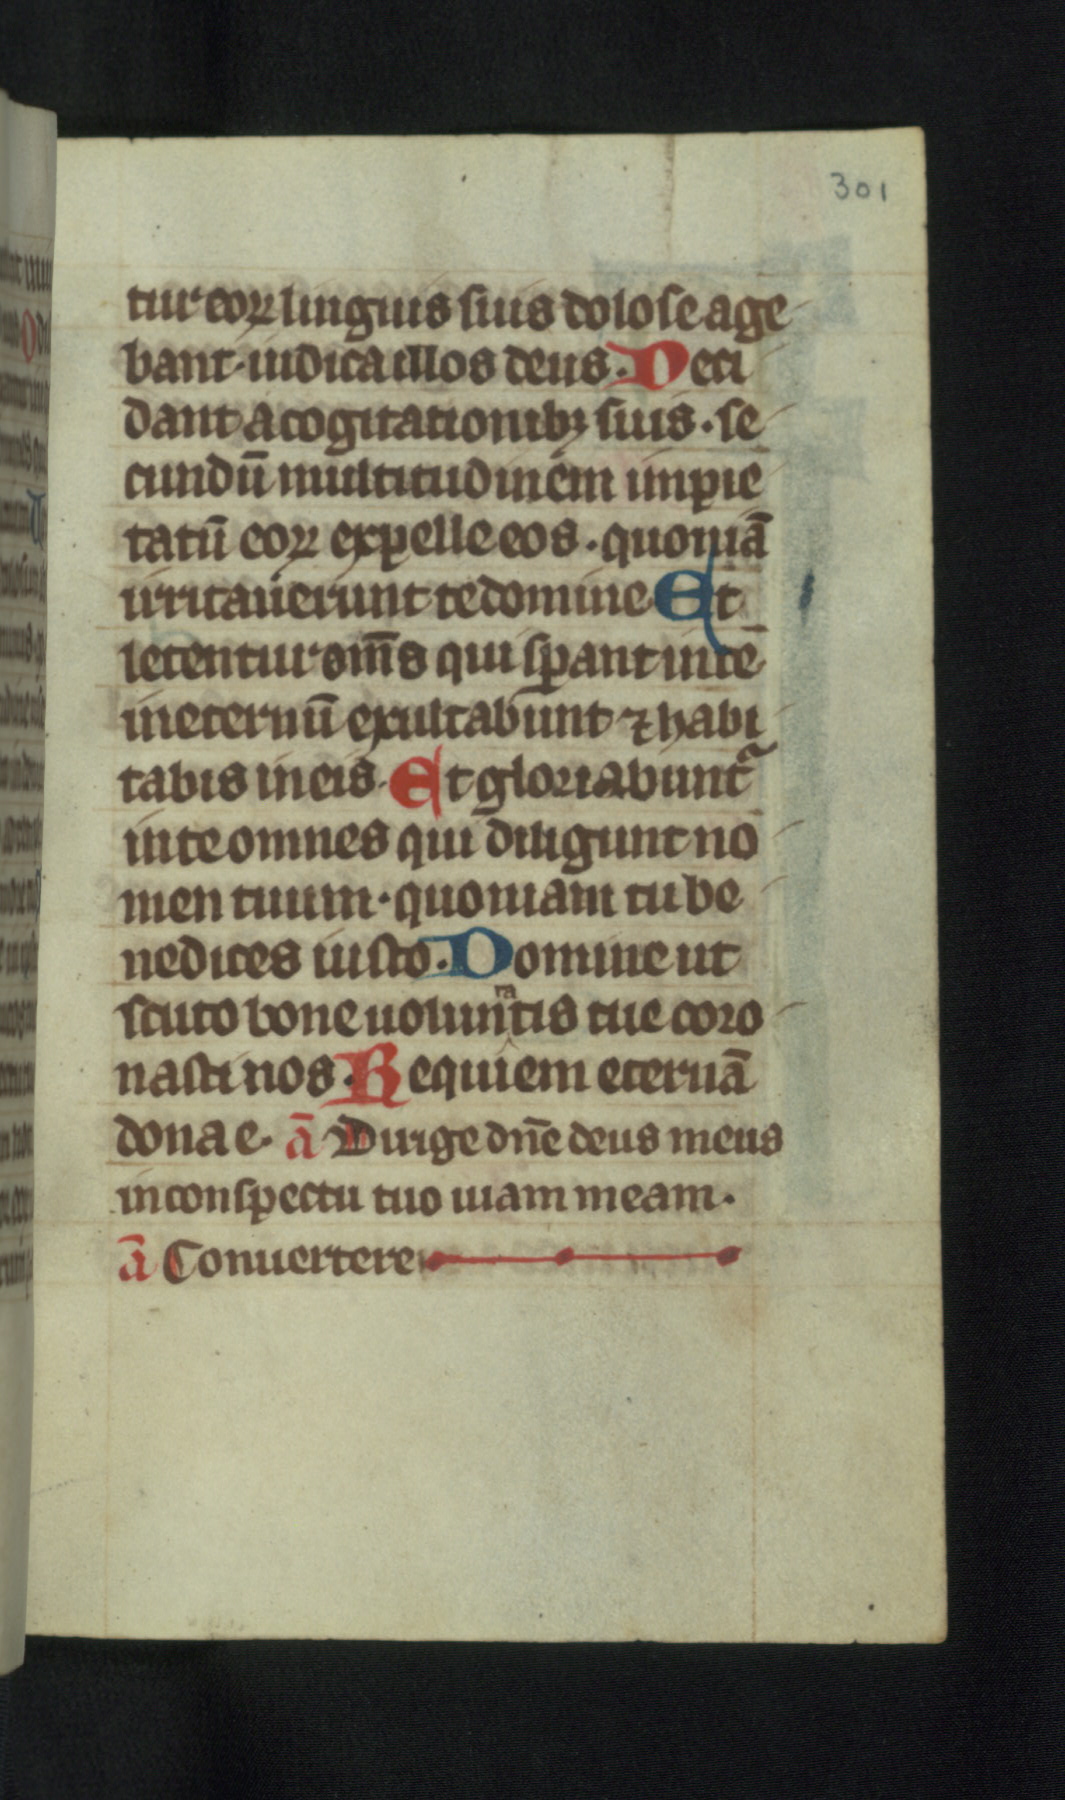 301
tur eoꝝ linguis suis dolose age
bant· iudica illos deus. Deci
dant a cogitationibꝫ suis. se
cundū multitudinem impie
tatū eoꝝ expelle eos. quoniā
irritauerunt te domine Et
letentur om̄s qui sꝑant in te
in eternū exultabunt ⁊ habi
tabis in eis. Et gloriabuntᷓ
in te omnes qui diligunt no
men tuum· quoniam tu be
nedices iusto. Domine ut
scuto bone uoluntatis tue coro
nasti nos. Requiem eternā
dona e. ā Dirige dn̄e deus meus
in conspectu tuo uiam meam.
ā Conuertere